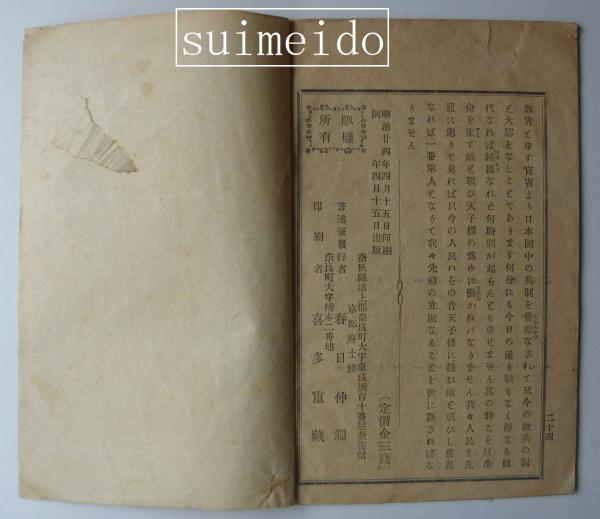 suimeido
部省と申す官省より日本國中の兵制を管轄なされて只今の徴兵の制
と大畧をなじことであります何分にも今日の通り戦もなく靜なる御
代なれば結搆なれど何時戦が起らんとも申せません其の時こそは生
命を棄て敵と戦ひ天子樣の爲めに働かねバなりません我々人民も先
祖に遡りて見れば只今の人民ハその昔天子樣に從ひ敵と戦ひし農恩
なれば一番軍人となりて我々先祖の立派なることを世に顯さねばな
りません
二十四
明治廿四年四月十五日印刷
同 年四月十五日出版
〔定價金三錢〕
版權
所有
奈良縣添上郡奈良町大字奈良坂百十番屋敷寄留
京都府士族
著述兼發行者 春日 仲淵
奈良町大字橋本二番地
印刷者 喜多重藏